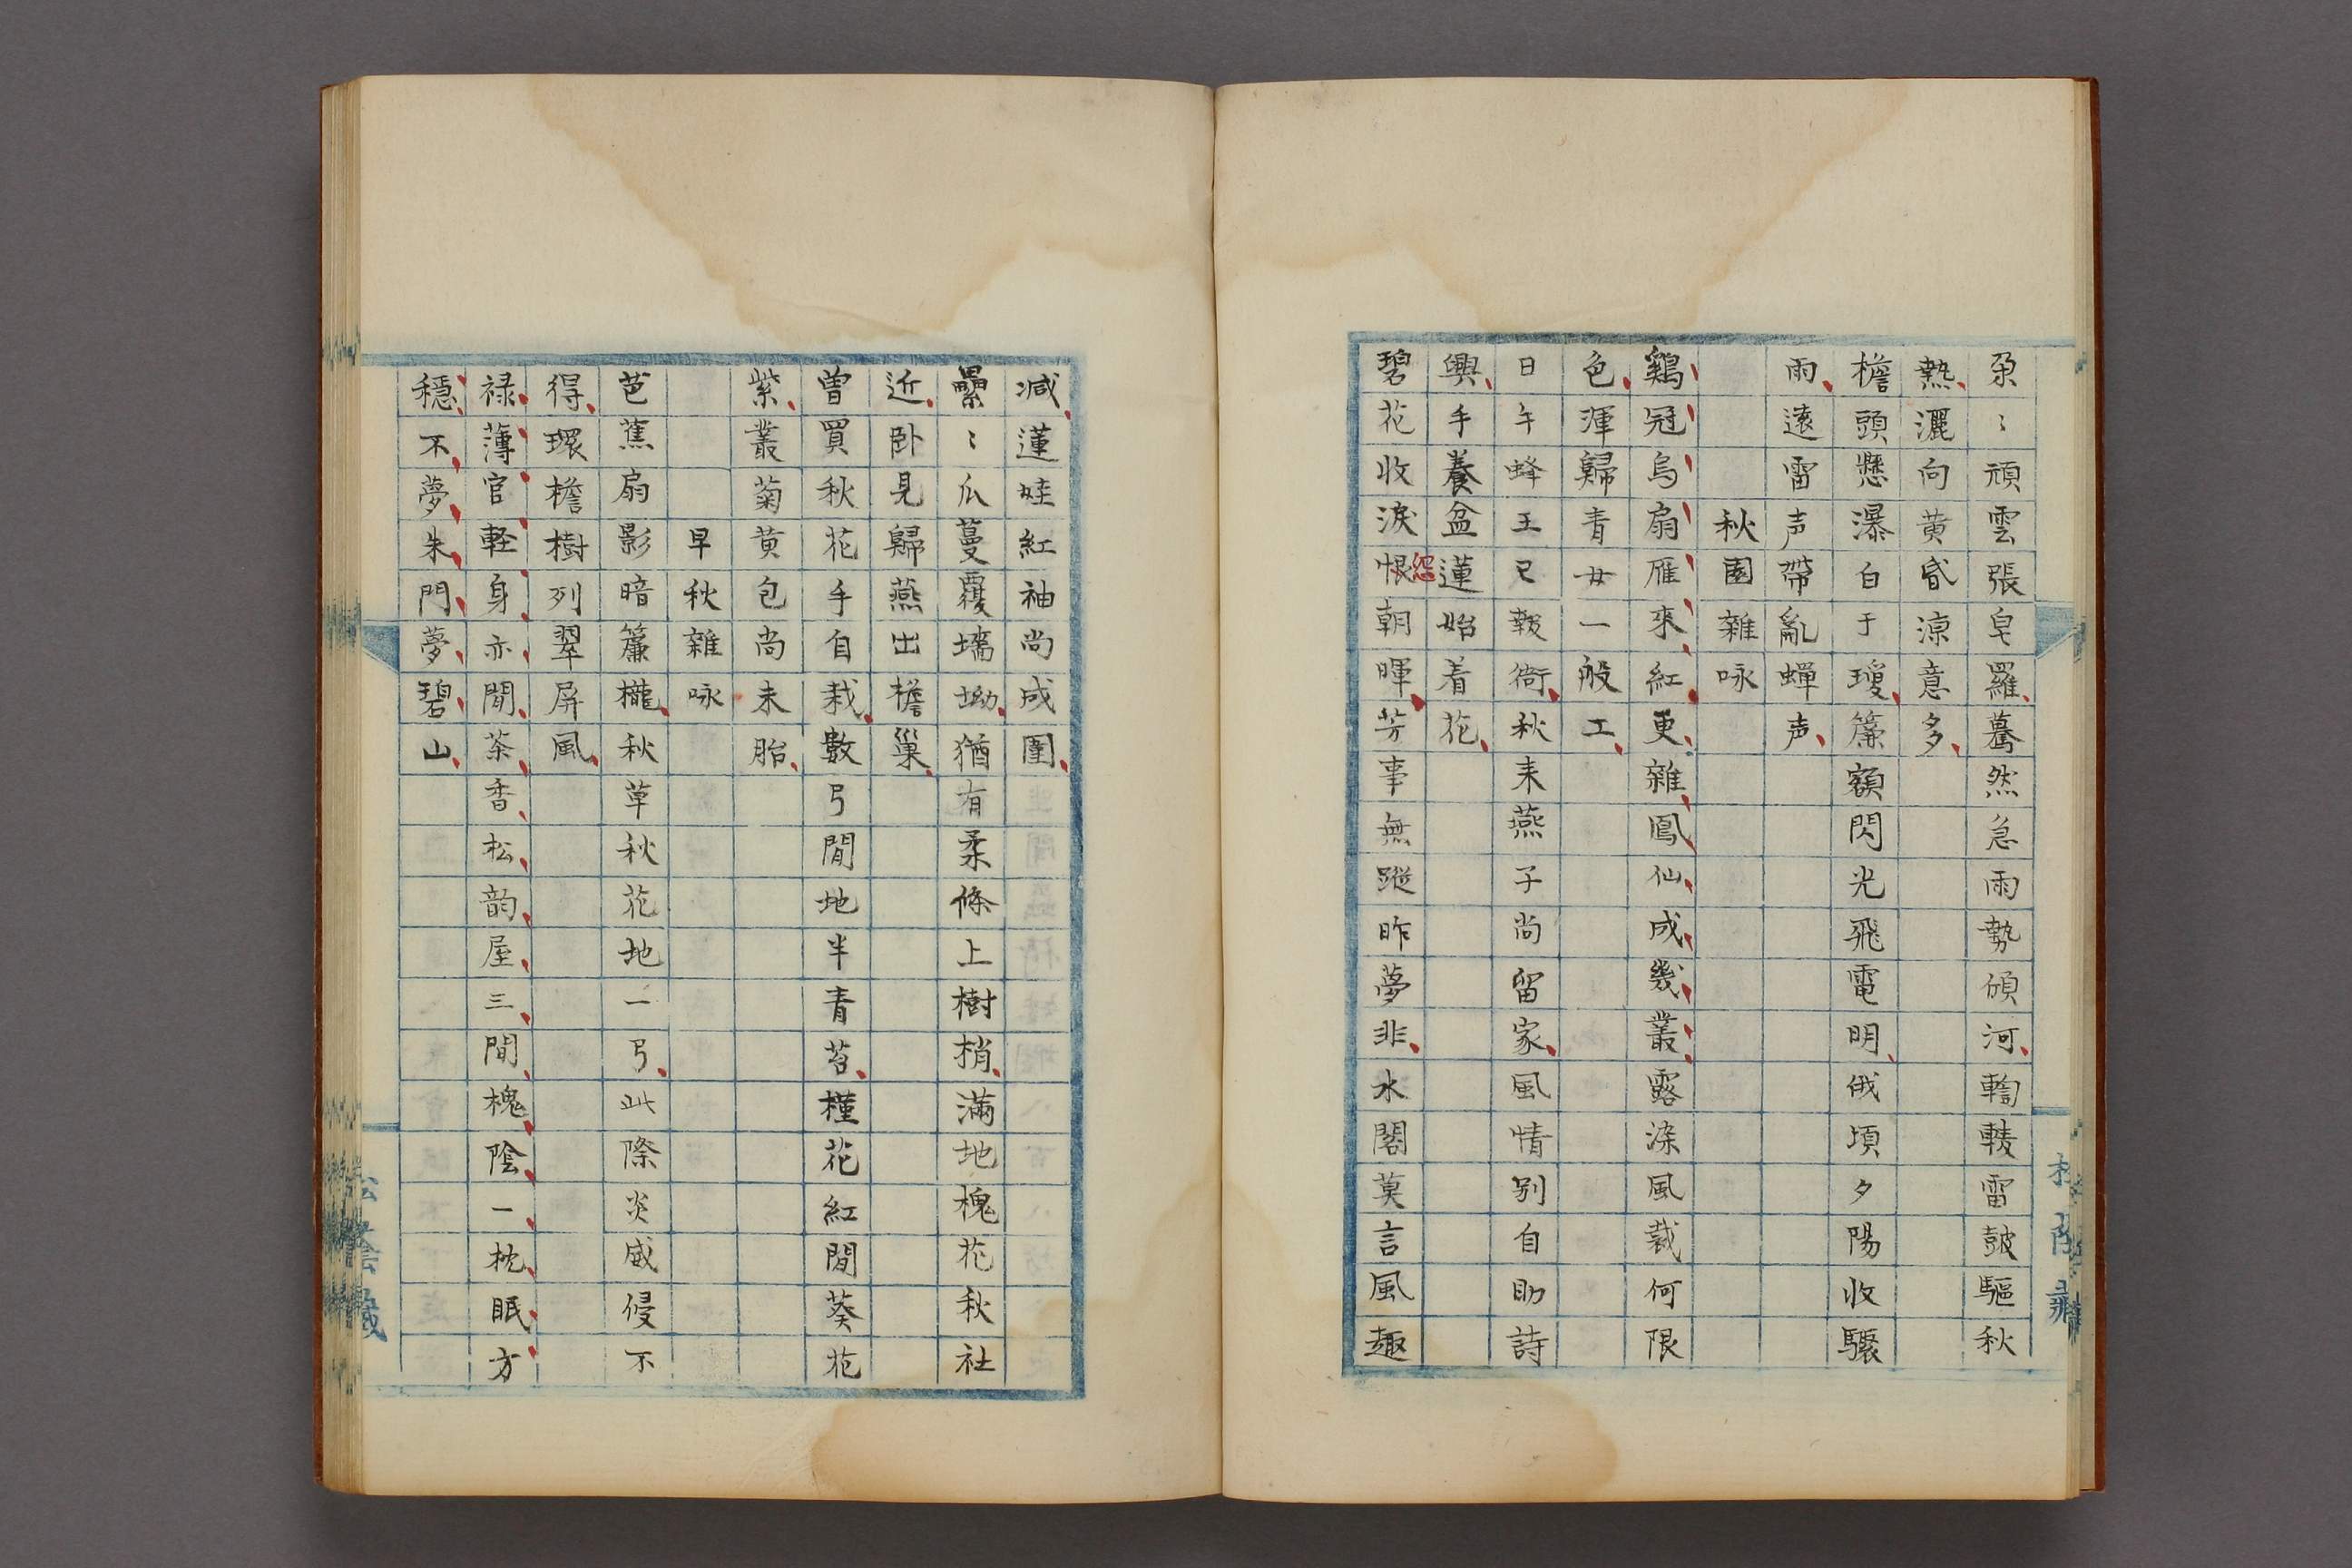 朶〻頑雲張皂羅驀然急雨勢傾河輷輘雷皷驅秋
熱灑向黃昏涼意多
檐頭懸瀑白于瓊簾額閃光飛電明俄頃夕陽收驟
雨遠雷声帶亂蟬声
秋園雜咏
鷄冠烏扇雁來紅更雜鳳仙成幾叢露染風裁何限
色渾歸青女一般工
日午蜂王已報衙秋来燕子尚留家風情別自助詩
興手養盆蓮始着花
碧花收淚恨怨朝暉芳事無蹤昨夢非水閣莫言風趣
减蓮娃紅袖尚成圍
纍〻瓜蔓覆墻坳猶有柔條上樹梢滿地槐花秋社
近卧見歸燕出檐巢
曽買秋花手自栽數弓閒地半青苔槿花紅間葵花
紫叢菊黄包尚未胎
早秋雜咏
芭蕉扇影暗簾櫳秋草秋花地一弓此際炎威侵不
得環檐樹列翠屏風
禄薄官軽身亦閒茶香松韵屋三間槐陰一枕眠方
穩不夢朱門夢碧山